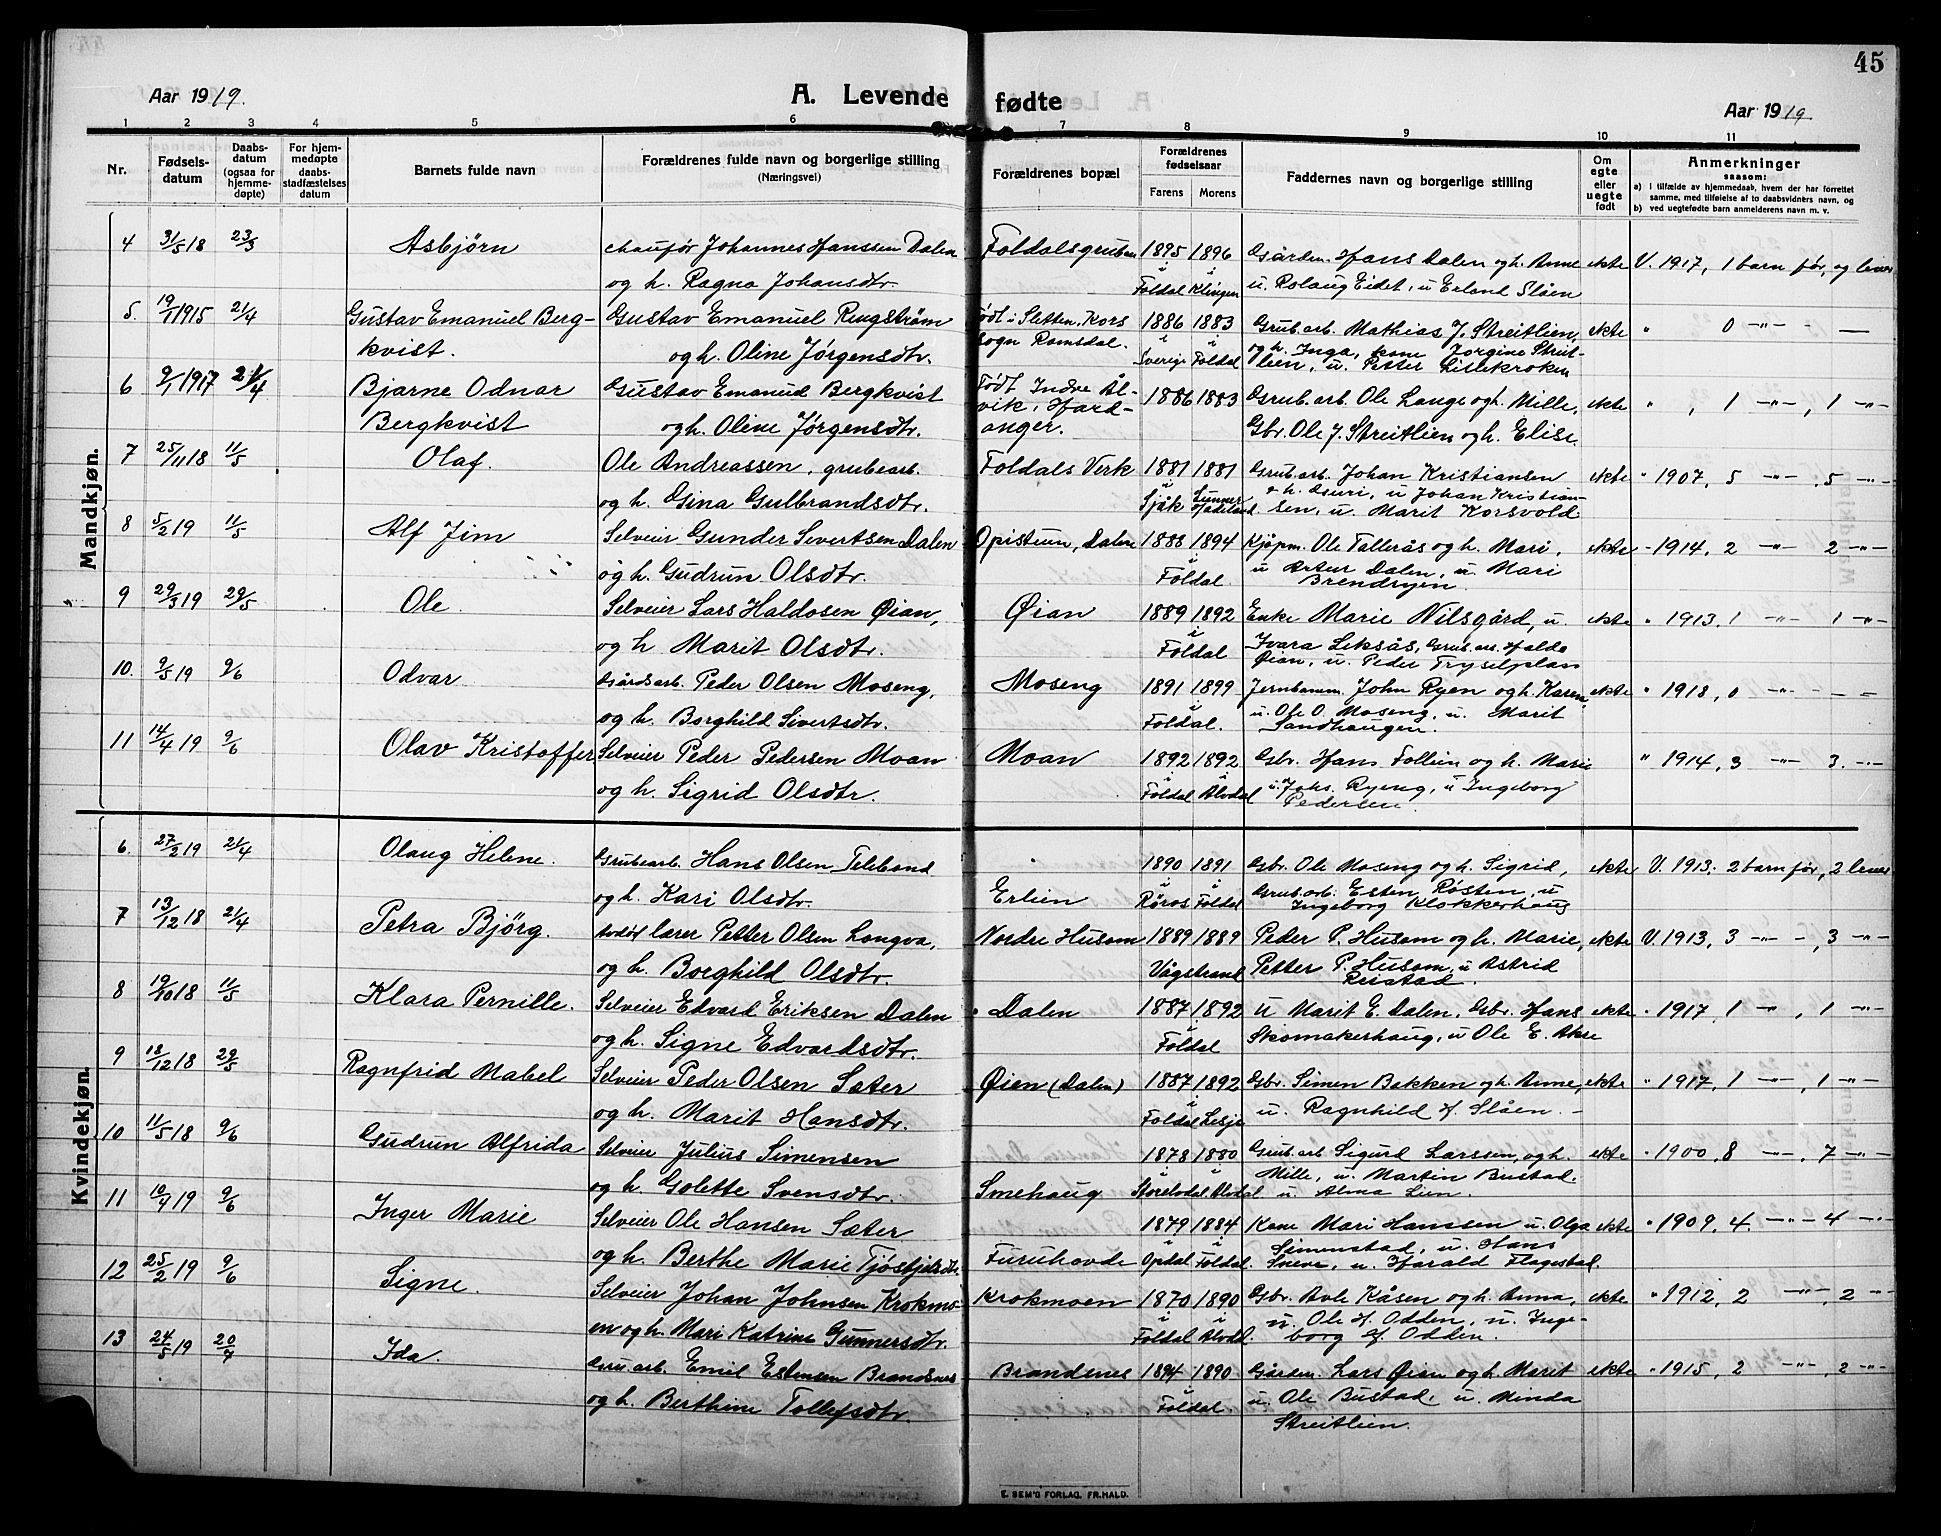 45
Aar 1919.
A. Levende fødte
Aar 1919.
1 2 3 4 5 6 7 8 9 10 11
Nr.
Fødsels-
datum
Daabs-
datum
(ogsaa for
hjemme-
døpte)
For hjem-
medøpte
daabs-
stadfæstelses
datum
Barnets fulde navn
Forældrenes fulde navn og borgerlige stilling
(Næringsvei)
Forældrenes bopæl
Forældrenes
fødselsaar
Farens Morens
Faddernes navn og borgerlige stilling
Om
egte
eller
uegte
født
Anmerkninger
saasom:
a) i tilfælde av hjemmedaab, hvem der har forrettet
samme, med tilføielse af to daabsvidners navn, og
b) ved uegtefødte barn anmelderens navn m. v.
Mandkjøn.
4 31/5 18 23/3 Asbjørn chaufør Johannes Hanssen Dalen Foldalsgruben 1895 1896 Gårdm. Hans Dalen og h. Anne ekte V. 1917, 1 barn før, og lever
og h. Ragna Johansdtr. i Foldal i Klingen u. Rolaug Eidet, u Erland Slåen
5. 19/1 1915 21/4 Gustav Emanuel Berg- Gustav Emanuel Rengstrøm Født i Sletten, Kors 1886 1883 Grub.arb. Mathias J. Streitlien, ekte " 0 -"- - —
kvist. og h. Oline Jørgensdtr. sogn Romsdal. i Sverige i Foldal og h. Inga, kone Jorgine Streit-
lien, u. Petter Lillekroken
6 9/1 1917 21/4 Bjarne Odnar Gustav Emanuel Bergkvist Født Indre Ål- 1886 1883 Grub.arb. Ole Lauge og h. Mille, ekte " , 1 -"-, 1 -"-
Bergkvist og h. Oline Jørgensdtr. vik, Hard- Gbr. Ole J. Streitlien og h. Elise
anger.
7 25/11 18 11/5 Olaf. Ole Andreassen, grubearb. Foldals Verk 1881 1881 Grub.arb. Johan Kristiansen ekte " 1907, 5 -"-, 5 -"-
og h. Gina Gulbrandsdtr. i Sjåk & h. Guri, u Johan Kristian-
sen, u. Marit Korsvold
8 5/2 19 11/5 Alf Jim Selveier Gunder Sivertsen Dalen Opistuen, Dalen 1888 1894 Kjøpm. Ole Tallerås og h. Mari, ekte - 1914, 2 -"- 2 -"-
og h. Gudrun Olsdtr. i Foldal u Artur Dalen, u. Mari
Brendryen.
9 29/3 19 29/5 Ole. Selveier Lars Haldosen Øian, Øian 1889 1892 Enke Marie Nilsgård, u. ekte " 1913, 1 -"- 1 -"-
og h. Marit Olsdtr. i Foldal Ivara Leksås, Grub.arb. Haldo
Øian, u. Peder Tryselplan
10. 9/5 19 9/6 Odvar Gårdsarb. Peder Olsen Moseng, Moseng 1891 1899 Jernbanm. John Ryen og h. Karen ekte " 1918, 0 -"- - —
og h. Borghild Sivertsdtr. i Foldal. u. Ole O. Moseng, u. Marit
Sandhaugen.
11 14/4 19 9/6 Olav Kristoffer Selveier Peder Pedersen Moan Moan 1892 1892 Gbr. Hans Follien og h. Marie " 1914, 3 -"- 3. -"-
og h. Sigrid Olsdtr. i Foldal i Alvdal u. Johs. Ryeng, u Ingeborg
Pedersen.
Kvindekjøn.
6. 27/2 19 21/4 Olaug Helene. Grubearb. Hans Olsen Telebond " 1890 1891 Gbr. Ole Moseng og h. Sigrid, ekte V. 1913: 2 barn før, 2 lever
og h. Kari Olsdtr. Erlien i Røros i Foldal Grub.arb. Esten Røsten, u
Ingeborg Klokkerhaug
7 13/12 18 21/4 Petra Bjørg. lærer Petter Olsen Longva, Nordre Husom 1889 1889 Peder P. Husom og h. Marie, ekte V. 1913, 3 -"- -, 3 -"-
og h. Borghild Olsdtr. Vågstrand Petter P. Husom, u Astrid
Rustad.
8 19/10 18 11/5 Klara Pernille. Selveier Edvard Eriksen Dalen Dalen 1887 1892 u Marit E. Dalen, Gbr. Hans ekte " 1917, 1 -"-, 1 -"-
og h. Signe Edvardsdtr. i Foldal Skomakerhaug, u Ole E. Akre
9 18/12 18 29/5 Ragnfrid Mabel Selveier Peder Olsen Sæter Øien (Dalen) 1887 1892 Gbr. Simen Bakken og h. Anne, ekte " 1917, 1 -"-, 1 -"-
og h. Marit Hansdtr. i Foldal Lesje u. Ragnhild H. Slåen. -
10 11/5 18 9/6 Gudrun Alfrida Selveier Julius Simensen 1878 1880 Grub.arb Sigurd Larssen, og h. ekte " 1900, 8 -"-, 7 -"-
og h. Golette Svensdtr. Smehaug i Storelvdal i Alvdal Mille, u. Martin Bustad.
u. Alma Lien.
11 10/4 19 9/6 Inger Marie Selveier Ole Hansen Sæter 1879 1884 Kone Mari Hanssen u. Olga ekte " 1909, 4. -"- 4 -"-
og h. Berthe Marie Furuhovde i Opdal i Foldal. Simenstad, u. Hans
Sneve, u. Harald Flagestad.
12 25/2 19 9/6 Signe. Selveier Johan Johnsen Krokmo- Krokmoen 1870 1890 Gbr. Avle Kåsen og h. Anna, ekte " 1912, 2 -"-, 2 -"-
en og h. Mari Katrine Gunnersdtr. i Foldal i Alvdal. u. Ole H. Odden, u. Inge-
borg H. Odden.
13 24/5 19 20/7 Ida. Gru.arb. Emil Estensen Brandsnes Brandsnes 1894 1890 Gårdm. Lars Øian og h. Marit ekte " 1915, 2 -"-, 2 -"-
og h. Berthine Tollefsdtr. i Foldal. u. Ole Bustad, u. Minda
Streitlien.
E. SEM'S FORLAG, FR.HALD.